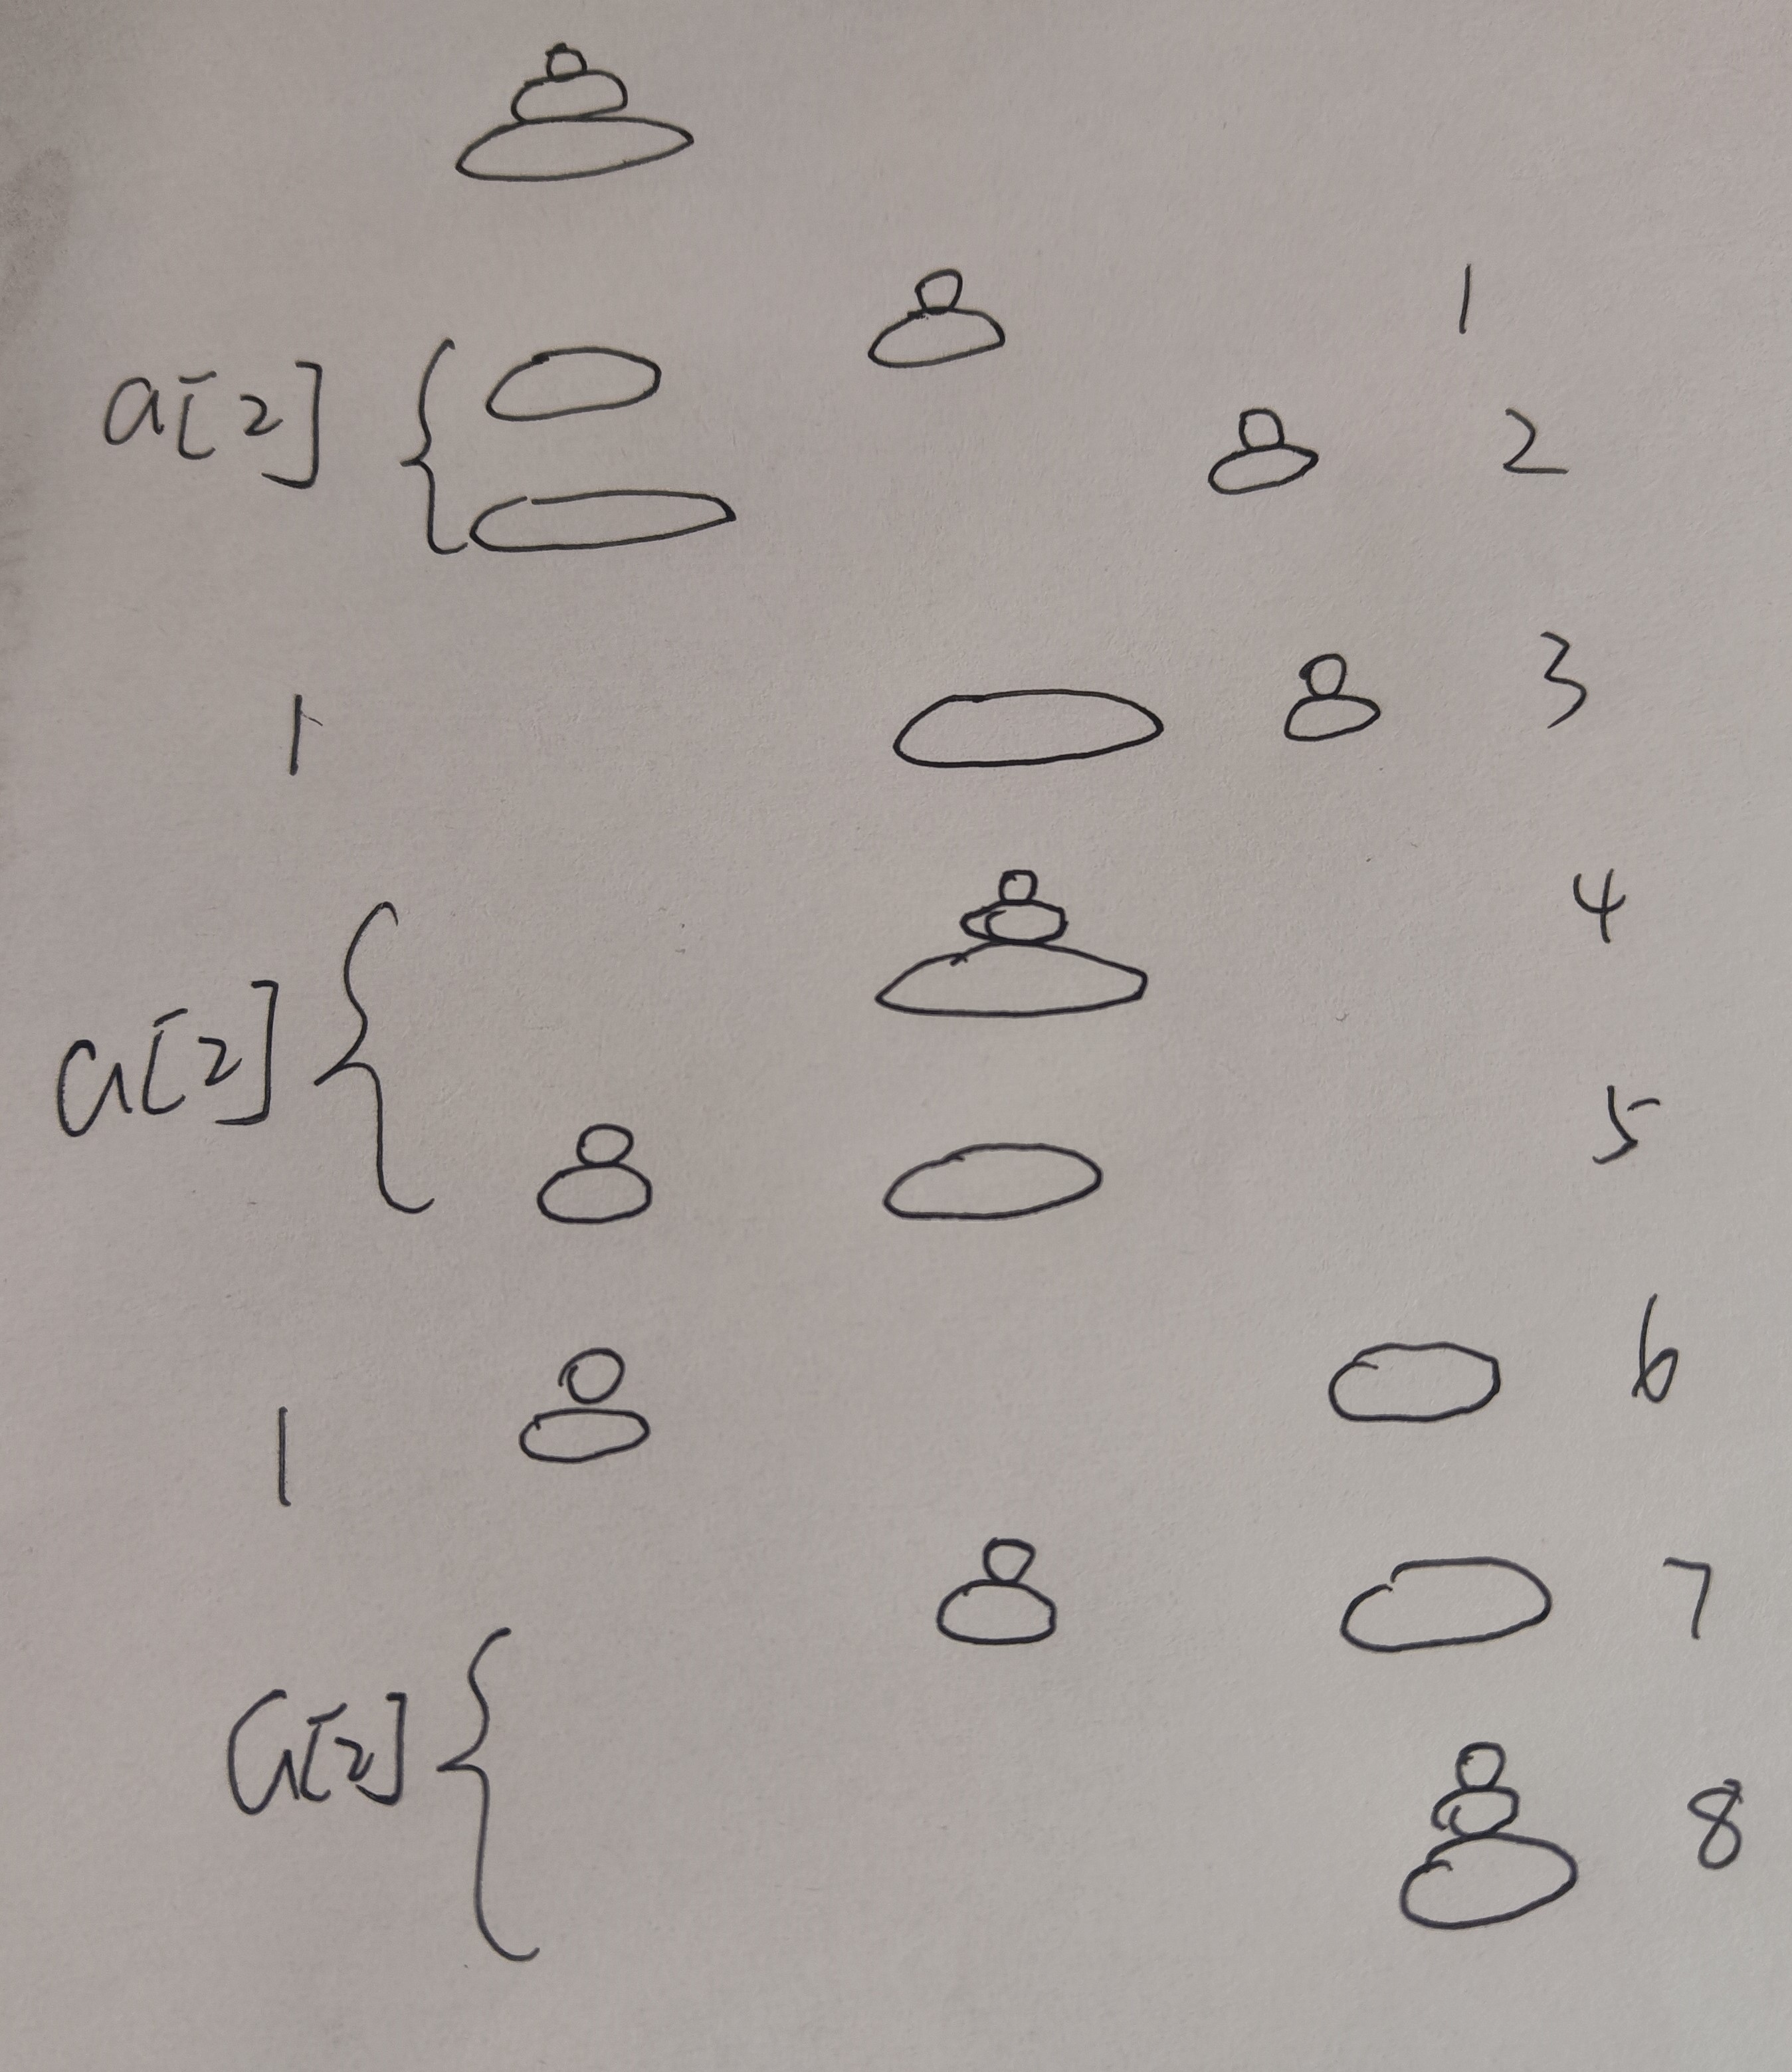 1
a[2] {
2
1 3
4
a[2] {
5
6
1
7
a[2] {
8